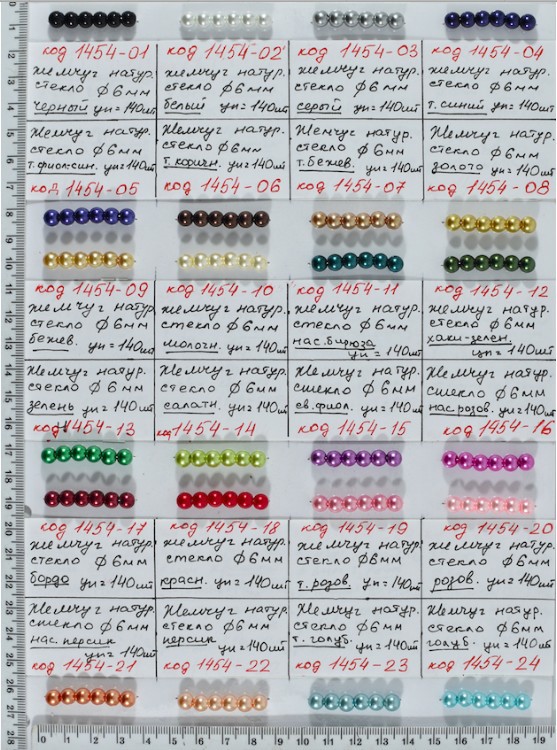 код 1454-01 код 1454-02 код 1454-03 код 1454-04
жемчуг натур. жемчуг натур. жемчуг натур. жемчуг натур.
стекло ϕ6мм стекло ϕ6мм стекло ϕ6мм стекло ϕ6мм
черный уп=140шт белый уп=140шт серый уп=140шт т.синий уп=140шт
жемчуг натур. жемчуг натур. жемчуг натур. жемчуг натур.
стекло ϕ6мм стекло ϕ6мм стекло ϕ6мм стекло ϕ6мм
т.фиол.син. уп=140шт т.коричн. уп=140шт т.бежев. уп=140шт золото уп=140шт
код 1454-05 код 1454-06 код 1454-07 код 1454-08
код 1454-09 код 1454-10 код 1454-11 код 1454-12
жемчуг натур. жемчуг натур. жемчуг натур. жемчуг натур.
стекло ϕ6мм стекло ϕ6мм стекло ϕ6мм стекло ϕ6мм
бежев. уп=140шт молочн. уп=140шт нас.бирюза хаки-зелен.
уп=140шт уп=140шт
жемчуг натур. жемчуг натур. жемчуг натур. жемчуг натур.
стекло ϕ6мм стекло ϕ6мм стекло ϕ6мм стекло ϕ6мм
зелень уп=140шт салатн. уп=140шт св.фиол. уп=140шт нас.розов. уп=140шт
код 1454-13 код 1454-14 код 1454-15 код 1454-16
код 1454-17 код 1454-18 код 1454-19 код 1454-20
жемчуг натур. жемчуг натур. жемчуг натур. жемчуг натур.
стекло ϕ6мм стекло ϕ6мм стекло ϕ6мм стекло ϕ6мм
бордо уп=140шт красн. уп=140шт т.розов. уп=140шт розов. уп=140шт
жемчуг натур. жемчуг натур. жемчуг натур. жемчуг натур.
стекло ϕ6мм стекло ϕ6мм стекло ϕ6мм стекло ϕ6мм
нас.персик персик уп=140шт т.голуб. уп=140шт голуб. уп=140шт
уп=140шт
код 1454-21 код 1454-22 код 1454-23 код 1454-24
0 1 2 3 4 5 6 7 8 9 10 11 12 13 14 15 16 17 18 19